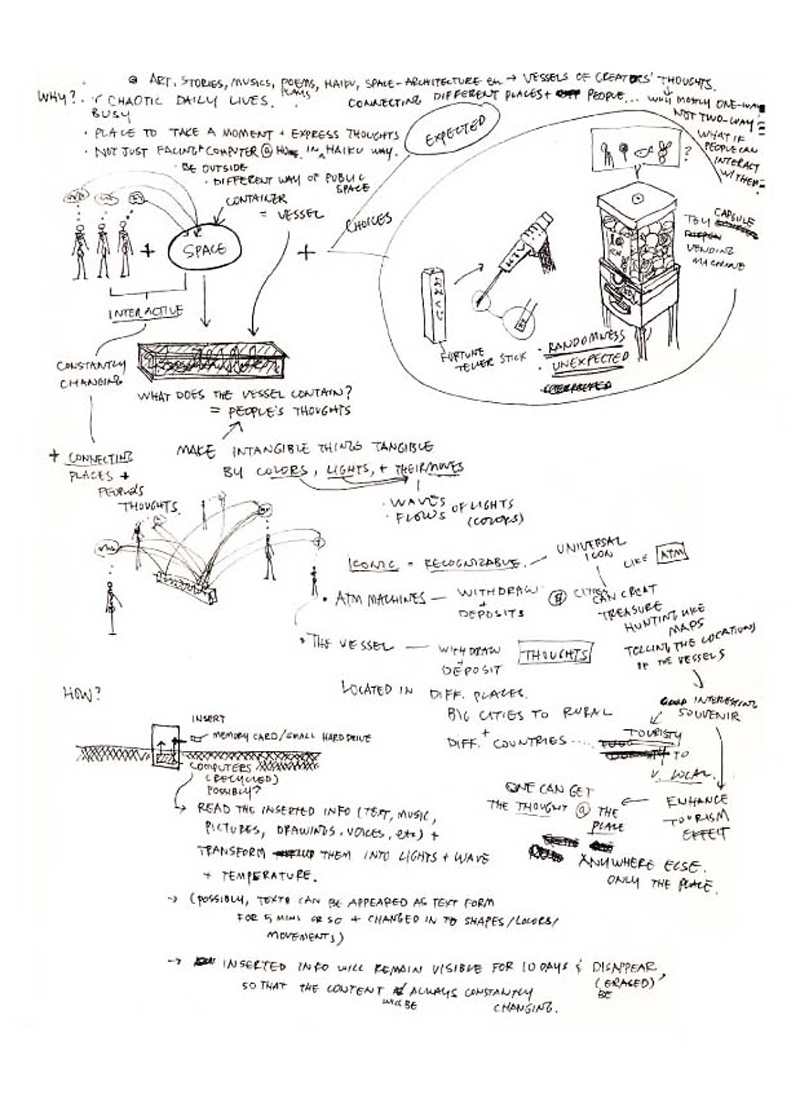 ART, STORIES, MUSICS, POEMS, HAIKU, SPACE-ARCHITECTURE → VESSELS OF CREATORS' THOUGHTS.
PLAYS
WHY?
CHAOTIC DAILY LIVES.
BUSY
CONNECTING DIFFERENT PLACES + PEOPLE... WHY MOSTLY ONE-WAY
NOT TWO-WAY
WHAT IF
PEOPLE CAN
INTERACT
W/ THEM
• PLACE TO TAKE A MOMENT + EXPRESS THOUGHTS
• NOT JUST FACING COMPUTER @ HOME IN HAIKU WAY.
• BE OUTSIDE
• DIFFERENT WAY OF PUBLIC
SPACE
CONTAINER
= VESSEL
EXPECTED
CHOICES
+
SPACE
+
INTERACTIVE
?
TOY CAPSULE
VENDING
MACHINE
FORTUNE
TELLER STICK
• RANDOMNESS
• UNEXPECTED
CONSTANTLY
CHANGING
WHAT DOES THE VESSEL CONTAIN?
= PEOPLE'S THOUGHTS
+ CONNECTING
PLACES +
PEOPLE'S
THOUGHTS
MAKE INTANGIBLE THINGS TANGIBLE
BY COLORS, LIGHTS, + THEIR MOVES
• WAVES
• FLOWS OF LIGHTS
(COLORS)
ICONIC = RECOGNIZABLE — UNIVERSAL
ICON LIKE ATM
• ATM MACHINES — WITHDRAW
+
DEPOSITS
@ CITIES
CAN CREAT
TREASURE
HUNTING LIKE
MAPS
TELLING THE LOCATIONS
OF THE VESSELS
• THE VESSEL — WITHDRAW
+
DEPOSIT
THOUGHTS
LOCATED IN DIFF. PLACES.
BIG CITIES TO RURAL
+
DIFF. COUNTRIES.....
INTERESTING
SOUVENIR
TOURISTY
TO
V. LOCAL.
ENHANCE
TOURISM
EFFECT
ONE CAN GET
THE THOUGHT @ THE
PLACE
ANYWHERE ELSE.
ONLY THE PLACE.
HOW?
INSERT
MEMORY CARD/SMALL HARD DRIVE
COMPUTERS
(RECYCLED)
POSSIBLY?
READ THE INSERTED INFO (TEXT, MUSIC,
PICTURES, DRAWINDS. VOICES, etc) +
TRANSFORM THEM INTO LIGHTS + WAVE
+ TEMPERATURE.
→ (POSSIBLY, TEXTS CAN BE APPEARED AS TEXT FORM
FOR 5 MINS OR SO + CHANGED IN TO SHAPES/COLORS/
MOVEMENTS)
→ INSERTED INFO WILL REMAIN VISIBLE FOR 10 DAYS & DISAPPEAR,
(ERASED)
SO THAT THE CONTENT ALWAYS CONSTANTLY
WILL BE
BE
CHANGING.